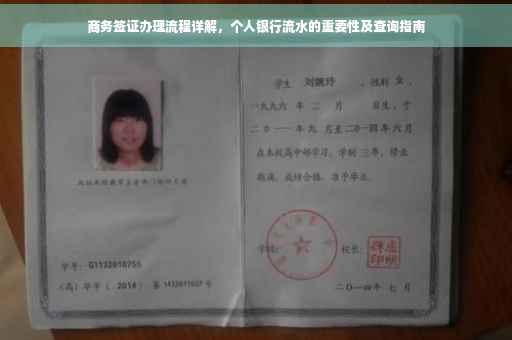 商务签证办理流程详解，个人银行流水的重要性及查询指南
学生 刘婉玲 ，性别 女 ，
一九九六 年 二 月 日生，于
二〇一一年九 月至二〇一四年六月
在本校高中部学习，学制 三年，修业
期满，成绩合格，准予毕业。
学校：
校长：
学号：G1132010755
（高）毕字（ 2014 ）第 1432011607 号
二〇一四年 七 月